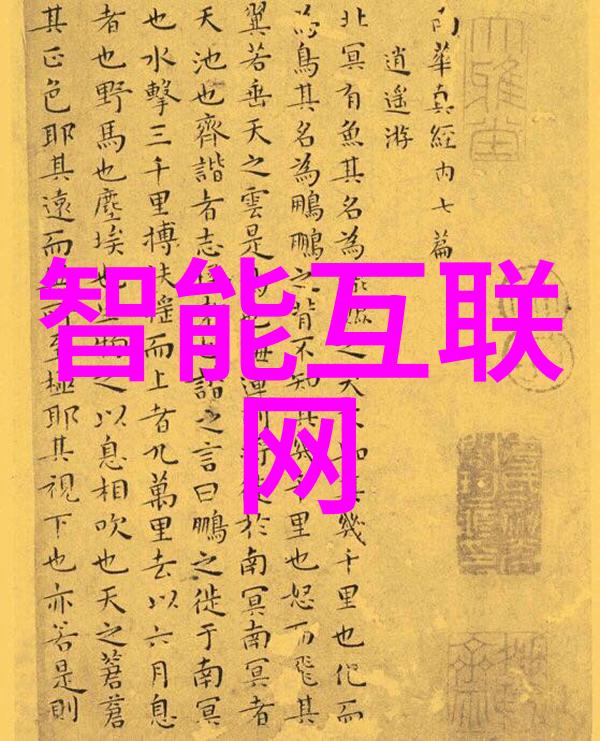 智能互联
网
南華真經内七篇
逍遥游
北冥有魚其名為之大不知其幾千里也化而
為鳥其名為鵬鵬之背不知其幾千里也怒而飛其
翼若垂天之雲是鳥也海運則將徙於南冥南冥者
天池也齊諧者志怪者也諧之言曰鵬之徙于南冥
也水擊三千里搏扶摇而上者九萬里去以六月息
者也野馬也塵埃也生物之以息相吹也天之蒼蒼
其正色耶其遠而至極耶其視下也亦若是則